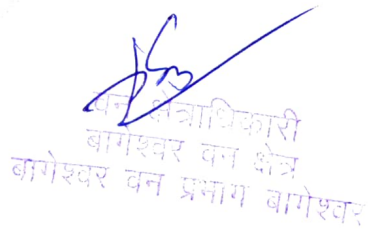 वन क्षेत्राधिकारी
बागेश्वर वन क्षेत्र
बागेश्वर वन प्रभाग बागेश्वर